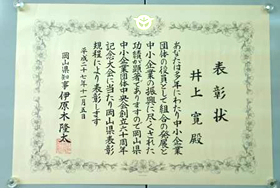 表彰状
井上寛殿
あなたは多年にわたり中小企業
団体の役員として組合の発展と
中小企業の振興に尽くされた
功績が顕著でありますので岡山県
中小企業団体中央会創立六十周年
記念大会に当たり岡山県表彰
規程により表彰します
平成二十七年十一月五日
岡山県知事 伊原木隆太